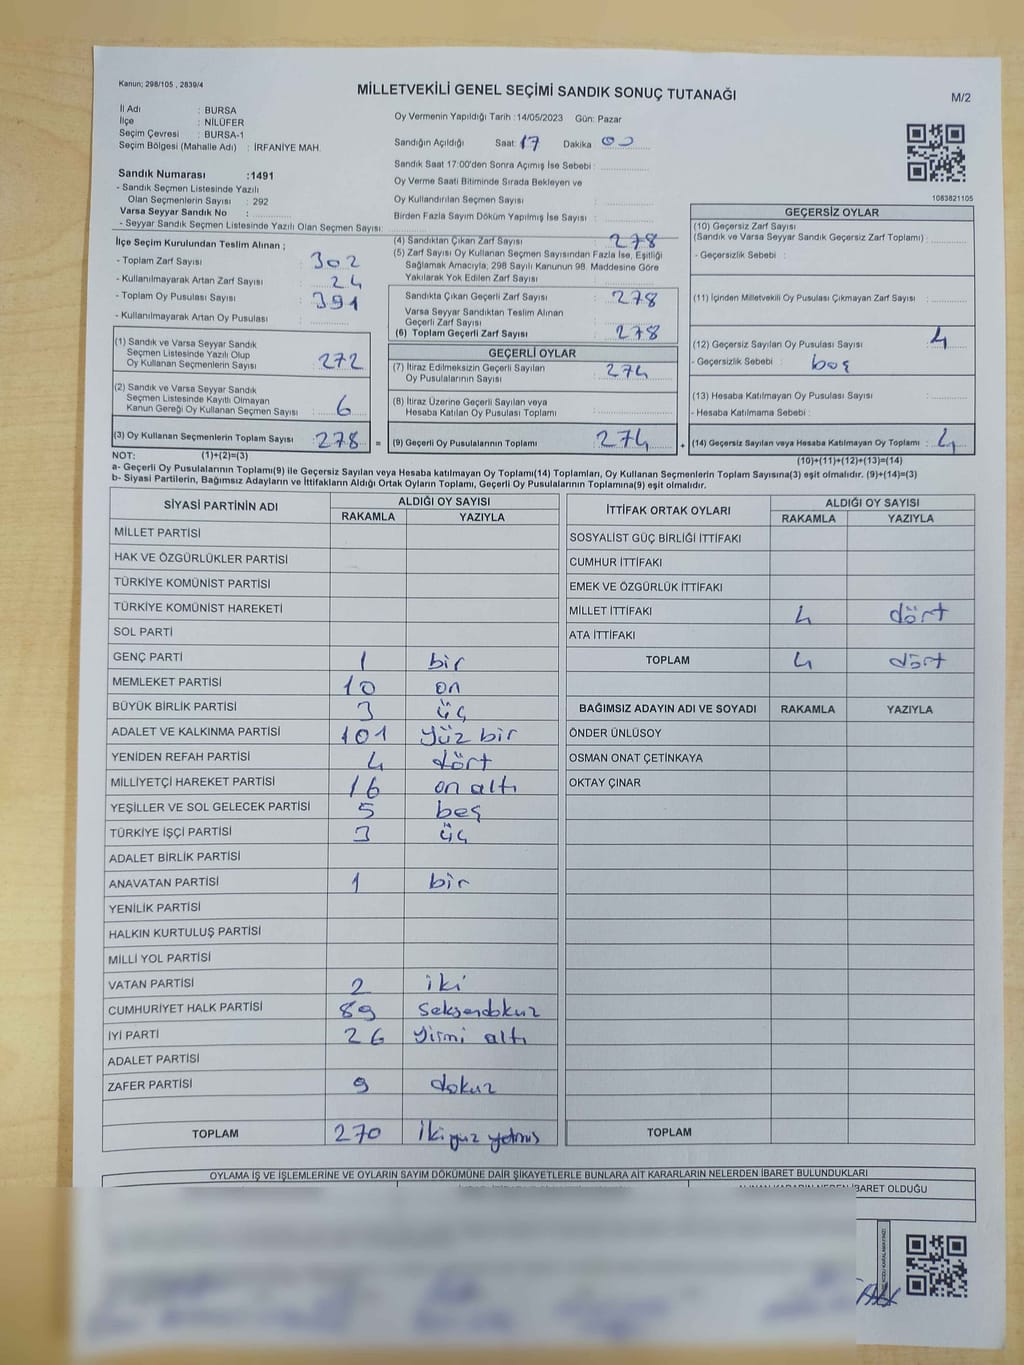 Kanun; 298/105 , 2839/4
MİLLETVEKİLİ GENEL SEÇİMİ SANDIK SONUÇ TUTANAĞI
M/2
İl Adı : BURSA
İlçe : NİLÜFER
Seçim Çevresi : BURSA-1
Seçim Bölgesi (Mahalle Adı) : İRFANİYE MAH.
Oy Vermenin Yapıldığı Tarih :14/05/2023 Gün: Pazar
Sandığın Açıldığı Saat: 17 Dakika 00
Sandık Saat 17:00'den Sonra Açımış İse Sebebi :
Oy Verme Saati Bitiminde Sırada Bekleyen ve
Oy Kullandırılan Seçmen Sayısı :
Birden Fazla Sayım Döküm Yapılmış İse Sayısı :
1083821105
Sandık Numarası :1491
- Sandık Seçmen Listesinde Yazılı
Olan Seçmenlerin Sayısı : 292
Varsa Seyyar Sandık No :
- Seyyar Sandık Seçmen Listesinde Yazılı Olan Seçmen Sayısı:
İlçe Seçim Kurulundan Teslim Alınan ;
- Toplam Zarf Sayısı : 302
- Kullanılmayarak Artan Zarf Sayısı : 24
- Toplam Oy Pusulası Sayısı : 391
- Kullanılmayarak Artan Oy Pusulası :
(1) Sandık ve Varsa Seyyar Sandık
Seçmen Listesinde Yazılı Olup
Oy Kullanan Seçmenlerin Sayısı : 272
(2) Sandık ve Varsa Seyyar Sandık
Seçmen Listesinde Kayıtlı Olmayan
Kanun Gereği Oy Kullanan Seçmen Sayısı : 6
(3) Oy Kullanan Seçmenlerin Toplam Sayısı : 278 =
(4) Sandıktan Çıkan Zarf Sayısı : 278
(5) Zarf Sayısı Oy Kullanan Seçmen Sayısından Fazla İse, Eşitliği
Sağlamak Amacıyla, 298 Sayılı Kanunun 98. Maddesine Göre
Yakılarak Yok Edilen Zarf Sayısı :
Sandıkta Çıkan Geçerli Zarf Sayısı : 278
Varsa Seyyar Sandıktan Teslim Alınan
Geçerli Zarf Sayısı :
(6) Toplam Geçerli Zarf Sayısı : 278
GEÇERLİ OYLAR
(7) İtiraz Edilmeksizin Geçerli Sayılan
Oy Pusulalarının Sayısı : 274
(8) İtiraz Üzerine Geçerli Sayılan veya
Hesaba Katılan Oy Pusulası Toplamı :
(9) Geçerli Oy Pusulalarının Toplamı : 274 +
GEÇERSİZ OYLAR
(10) Geçersiz Zarf Sayısı
(Sandık ve Varsa Seyyar Sandık Geçersiz Zarf Toplamı) :
- Geçersizlik Sebebi :
(11) İçinden Milletvekili Oy Pusulası Çıkmayan Zarf Sayısı :
(12) Geçersiz Sayılan Oy Pusulası Sayısı : 4
- Geçersizlik Sebebi : boş
(13) Hesaba Katılmayan Oy Pusulası Sayısı :
- Hesaba Katılmama Sebebi :
(14) Geçersiz Sayılan veya Hesaba Katılmayan Oy Toplamı : 4
NOT: (1)+(2)=(3)
(10)+(11)+(12)+(13)=(14)
a- Geçerli Oy Pusulalarının Toplamı(9) ile Geçersiz Sayılan veya Hesaba katılmayan Oy Toplamı(14) Toplamları, Oy Kullanan Seçmenlerin Toplam Sayısına(3) eşit olmalıdır. (9)+(14)=(3)
b- Siyasi Partilerin, Bağımsız Adayların ve İttifakların Aldığı Ortak Oyların Toplamı, Geçerli Oy Pusulalarının Toplamına(9) eşit olmalıdır.
SİYASİ PARTİNİN ADI ALDIĞI OY SAYISI
RAKAMLA YAZIYLA
MİLLET PARTİSİ
HAK VE ÖZGÜRLÜKLER PARTİSİ
TÜRKİYE KOMÜNİST PARTİSİ
TÜRKİYE KOMÜNİST HAREKETİ
SOL PARTİ
GENÇ PARTİ 1 bir
MEMLEKET PARTİSİ 10 on
BÜYÜK BİRLİK PARTİSİ 3 üç
ADALET VE KALKINMA PARTİSİ 101 yüz bir
YENİDEN REFAH PARTİSİ 4 dört
MİLLİYETÇİ HAREKET PARTİSİ 16 on altı
YEŞİLLER VE SOL GELECEK PARTİSİ 5 beş
TÜRKİYE İŞÇİ PARTİSİ 3 üç
ADALET BİRLİK PARTİSİ
ANAVATAN PARTİSİ 1 bir
YENİLİK PARTİSİ
HALKIN KURTULUŞ PARTİSİ
MİLLİ YOL PARTİSİ
VATAN PARTİSİ 2 iki
CUMHURİYET HALK PARTİSİ 89 seksendokuz
İYİ PARTİ 26 yirmi altı
ADALET PARTİSİ
ZAFER PARTİSİ 9 dokuz
TOPLAM 270 ikiyüz yetmiş
İTTİFAK ORTAK OYLARI ALDIĞI OY SAYISI
RAKAMLA YAZIYLA
SOSYALİST GÜÇ BİRLİĞİ İTTİFAKI
CUMHUR İTTİFAKI
EMEK VE ÖZGÜRLÜK İTTİFAKI
MİLLET İTTİFAKI 4 dört
ATA İTTİFAKI
TOPLAM 4 dört
BAĞIMSIZ ADAYIN ADI VE SOYADI RAKAMLA YAZIYLA
ÖNDER ÜNLÜSOY
OSMAN ONAT ÇETİNKAYA
OKTAY ÇINAR
TOPLAM
OYLAMA İŞ VE İŞLEMLERİNE VE OYLARIN SAYIM DÖKÜMÜNE DAİR ŞİKAYETLERLE BUNLARA AİT KARARLARIN NELERDEN İBARET BULUNDUKLARI
ALINAN KARARIN NEDEN İBARET OLDUĞU